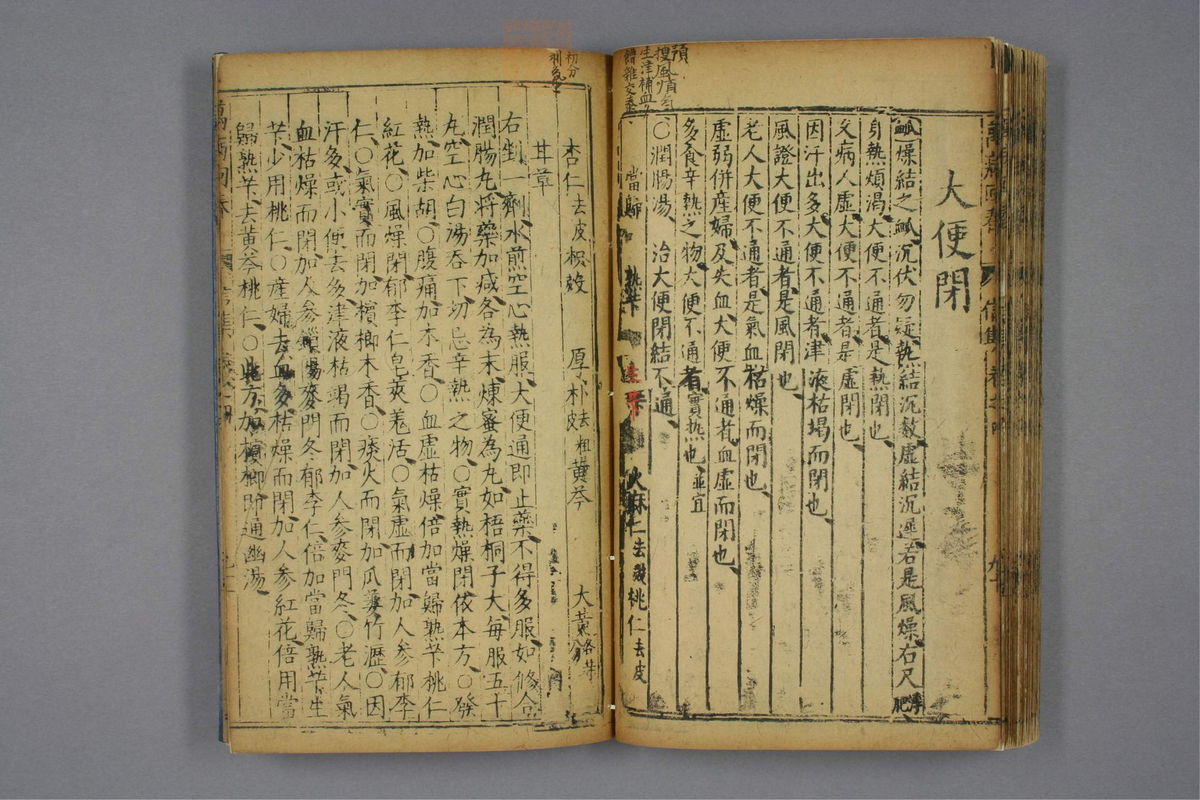 大便閉
脉燥結之脉沉伏勿疑熱結沉數虛結沉遲若是風燥右尺浮肥
身熱煩渴大便不通者是熱閉也
久病人虛大便不通者是虛閉也
因汗出多大便不通者津液枯竭而閉也
風證大便不通者是風閉也
老人大便不通者是氣血枯燥而閉也
虛弱併産婦及失血大便不通者血虛而閉也
多食辛熱之物大便不通者實熱也並宜
○潤腸湯 治大便閉結不通
當歸 熟苄 火麻仁去殼 桃仁去皮
杏仁去皮 枳殼 厚朴去粗皮 黃芩 大黃各等分
甘草
右剉一劑水煎空心熱服大便通即止藥不得多服如修合
潤腸丸將藥加減各為末煉蜜為丸如梧桐子大每服五十
丸空心白湯吞下切忌辛熱之物○實熱燥閉依本方○發
熱加柴胡○腹痛加木香○血虛枯燥倍加當歸熟苄桃仁
紅花○風燥閉郁李仁皂莢羗活○氣虛而閉加人參郁李
仁○氣實而閉加檳榔木香○痰火而閉加瓜蔞竹瀝○因
汗多或小便去多津液枯竭而閉加人參麥門冬○老人氣
血枯燥而閉加人參鎖陽麥門冬郁李仁倍加當歸熟苄生
苄少用桃仁○産婦去血多枯燥而閉加人參紅花倍用當
歸熟苄去黃芩桃仁○此方加檳榔即通幽湯